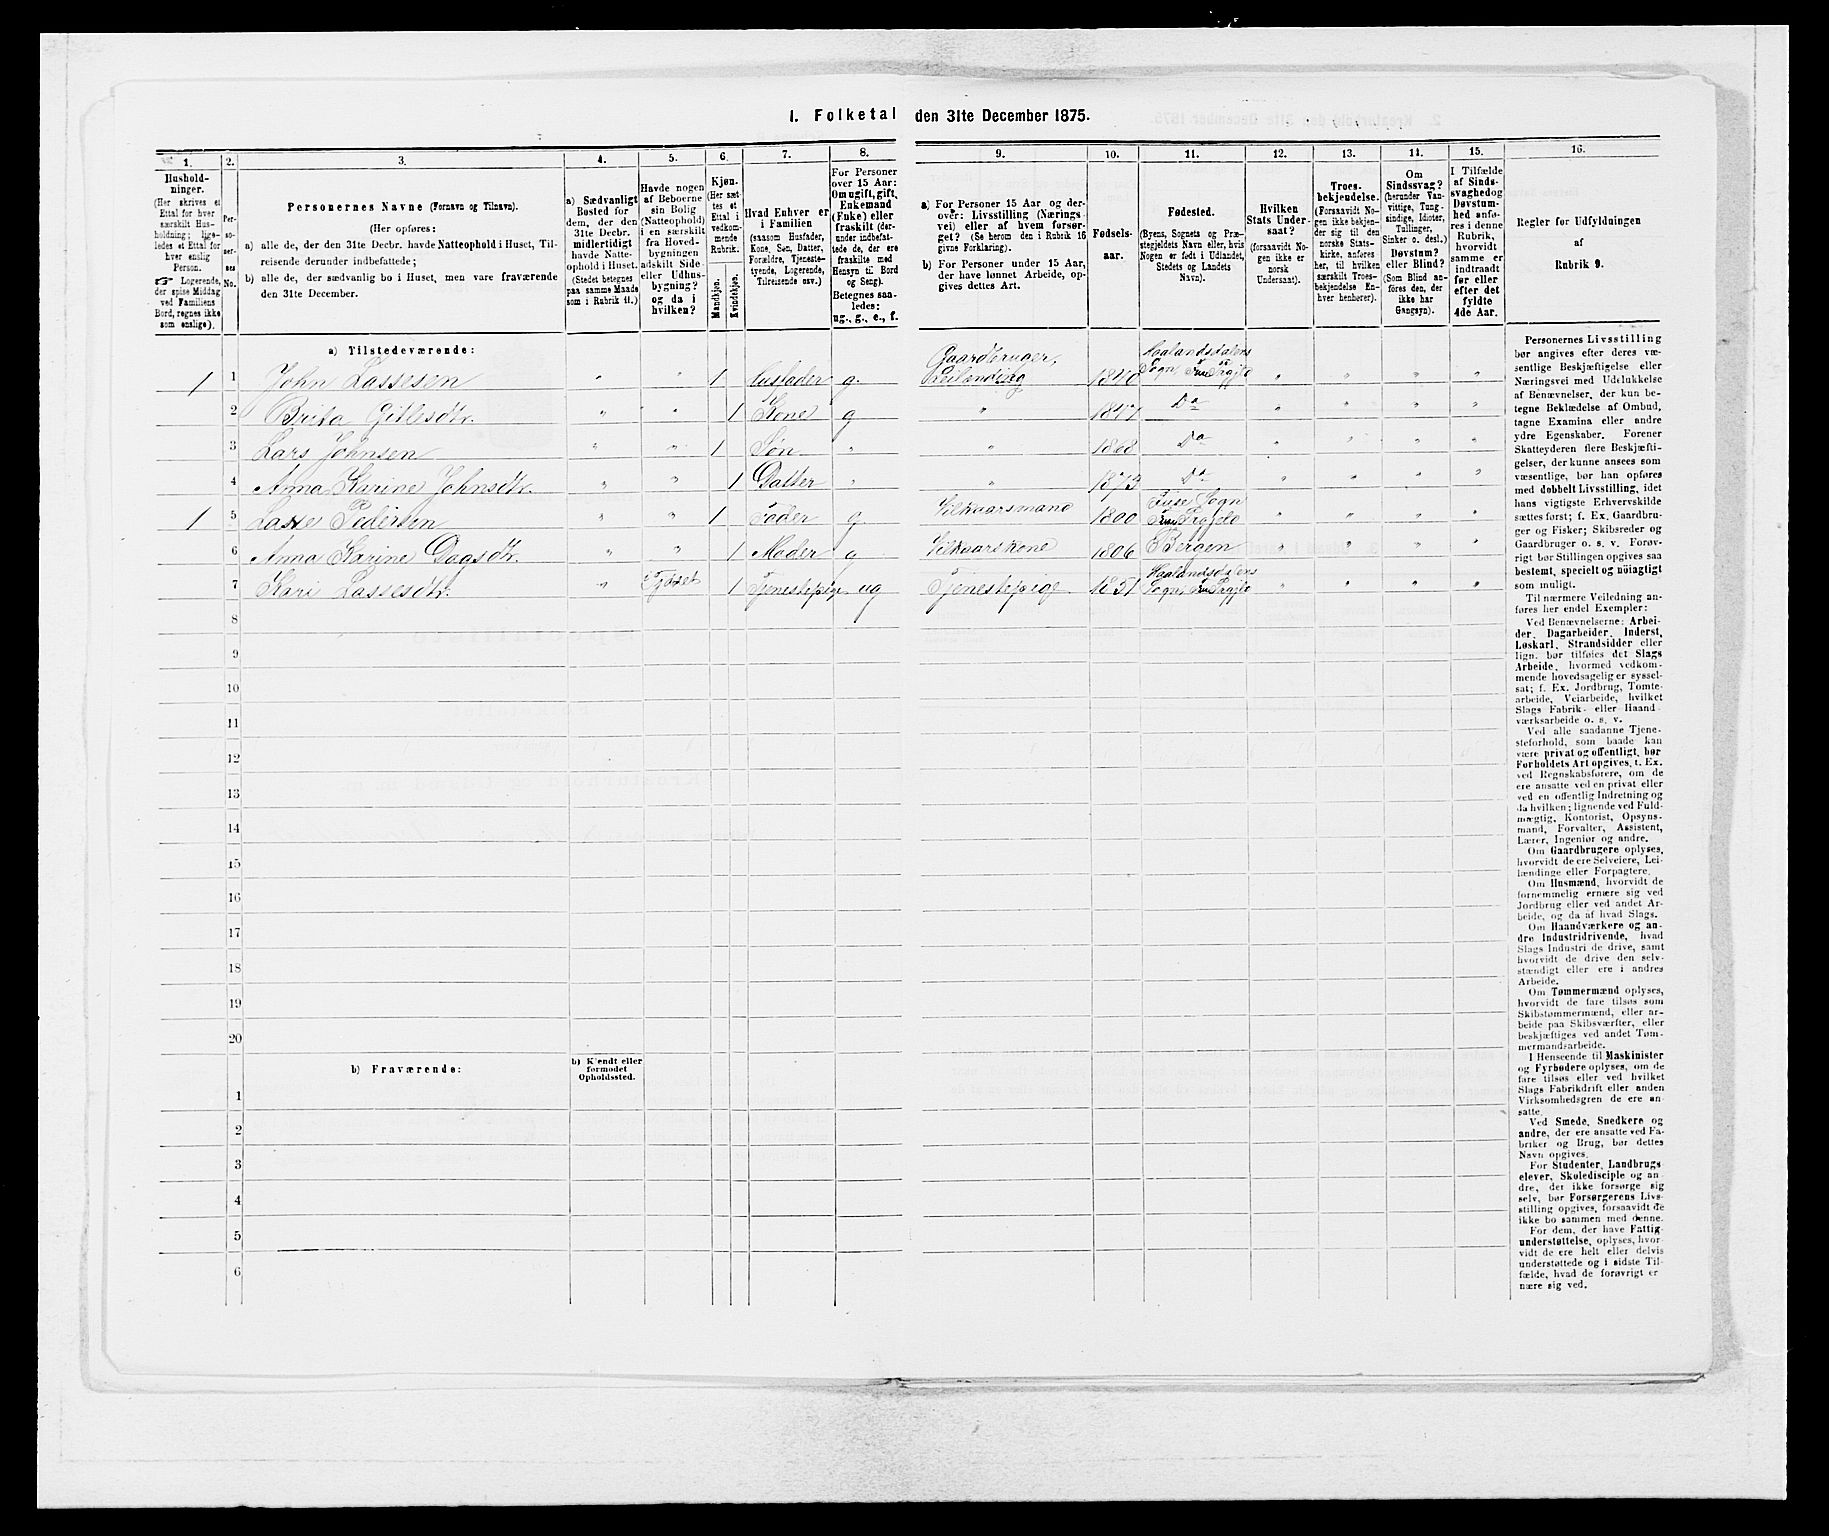 1. Folketal den 31te December 1875.
1. 2. 3. 4. 5. 6. 7. 8. 9. 10. 11. 12. 13. 14. 15. 16.
Hushold-
ninger.
(Her skrives et
Ettal for hver
særskilt Hus-
holdning; lige-
ledes et Ettal for
hver enslig
Person.
☞ Logerende,
der spise Middag
ved Familiens
Bord, regnes ikke
som enslige).
Per-
so-
ner-
nes
No.
Personernes Navne (Fornavn og Tilnavn).
(Her opføres:
a) alle de, der den 31te Decbr. havde Natteophold i Huset, Til-
reisende derunder indbefattede;
b) alle de, der sædvanlig bo i Huset, men vare fraværende
den 31te December.
a) Sædvanligt
Bosted for
dem, der den
31te Decbr.
midlertidigt
havde Natte-
ophold i Huset.
(Stedet betegnes
paa samme Maade
som i Rubrik 11.)
Havde nogen
af Beboerne
sin Bolig
(Natteophold)
i en særskilt
fra Hoved-
bygningen
adskilt Side-
eller Udhus-
bygning?
og da i
hvilken?
Kjøn.
(Her sæt-
tes et
Ettal i
vedkom-
mende
Rubrik.
Mandkjøn.
Kvindekjøn.
Hvad Enhver er
i Familien
(saasom Husfader,
Kone, Søn, Datter,
Forældre, Tjeneste-
tyende, Logerende,
Tilreisende osv.)
For Personer
over 15 Aar:
Om ugift, gift,
Enkemand
(Enke) eller
fraskilt (der-
under indbefat-
tede de, der ere
fraskilte med
Hensyn til Bord
og Seng).
Betegnes saa-
ledes:
ug., g., e., f.
a) For Personer 15 Aar og der-
over: Livsstilling (Nærings-
vei) eller af hvem forsør-
get? (Se herom den i Rubrik 16
givne Forklaring).
b) For Personer under 15 Aar,
der have lønnet Arbeide, op-
gives dettes Art.
Fødsels-
aar.
Fødested.
(Byens, Sognets og Præ-
stegjeldets Navn eller, hvis
Nogen er født i Udlandet,
Stedets og Landets
Navn).
Hvilken
Stats Under-
saat?
(forsaavidt No-
gen ikke er
norsk
Undersaat).
Troes-
bekjendelse.
(Forsaavidt No-
gen ikke bekjen-
der sig til den
norske Stats-
kirke, anføres
her, til hvilken
særskilt Troes-
bekjendelse En-
hver henhører).
Om
Sindssvag?
(herunder Van-
vittige, Tung-
sindige, Idioter,
Tullinger,
Sinker o. desl.)
Døvstum?
eller Blind?
(Som Blind an-
føres den, der
ikke har
Gangsyn).
I Tilfælde
af Sinds-
svaghed og
Døvstum-
hed anfø-
res i denne
Rubrik,
hvorvidt
samme er
indtraadt
før eller
efter det
fyldte
4de Aar.
Regler for Udfyldningen
af
Rubrik 9.
a) Tilstedeværende:
1 1 John Lassesen " " 1 Husfader g. Gaardbruger, Leilænding 1840 Haalandsdalens Sogn, Fuse Prgjld " " " "
2 Brita Gitlesdtr. " " 1 Kone g " 1847 Do " " " "
3 Lars Johnsen " " 1 Søn " " 1868 Do " " " "
4 Anna Karine Johnsdtr. " " 1 Datter " " 1873 Do " " " "
1 5 Lasse Pedersen " " 1 Fader g. Vilkaarsmand 1800 Fuse Sogn Fuse Prgjeld " " " "
6 Anna Karine Dagsdtr. " " 1 Moder g Vilkaarskone 1806 Bergen " " " "
7 Kari Lassesdtr. " i Fjøset 1 Tjenestepige ug Tjenestepige 1851 Haalandsdalens Sogn, Fuse Prgjld " " " "
8
9
10
11
12
13
14
15
16
17
18
19
20
b) Fraværende:
b) Kjendt eller
formodet
Opholdssted.
1
2
3
4
5
6
Personernes Livsstilling
bør angives efter deres væ-
sentlige Beskjæftigelse eller
Næringsvei med Udelukkelse
af Benævnelser, der kun be-
tegne Beklædelse af Ombud,
tagne Examina eller andre
ydre Egenskaber. Forener
Skatteyderen flere Beskjæfti-
gelser, der kunne ansees som
væsentlige, bør han opføres
med dobbelt Livsstilling, idet
hans vigtigste Erhvervskilde
sættes først; f. Ex. Gaardbru-
ger og Fisker; Skibsreder og
Gaardbruger o. s. v. Forøv-
rigt bør Stillingen opgives saa
bestemt, specielt og nöiagtigt
som muligt.
Til nærmere Veiledning an-
føres her endel Exempler:
Ved Benævnelserne: Arbei-
der, Dagarbeider, Inderst,
Løskarl, Strandsidder eller
lign. bør tilføies det Slags
Arbeide, hvormed vedkom-
mende hovedsagelig er syssel-
sat; f. Ex. Jordbrug, Tomte-
arbeide, Veiarbeide, hvilket
Slags Fabrik- eller Haand-
værksarbeide o. s. v.
Ved alle saadanne Tjene-
steforhold, som baade kan
være privat og offentligt, bør
Forholdets Art opgives, t. Ex.
ved Regnskabsførere, om de
ere ansatte ved en privat eller
ved en offentlig Indretning og
da hvilken; lignende ved Fuld-
mægtig, Kontorist, Opsyns-
mand, Forvalter, Assistent,
Lærer, Ingeniør og andre.
Om Gaardbrugere oplyses,
hvorvidt de ere Selveiere, Lei-
lændinge eller Forpagtere.
Om Husmænd, hvorvidt de
fornemmelig ernære sig ved
Jordbrug eller ved andet Ar-
beide, og da af hvad Slags.
Om Haandværkere og an-
dre Industridrivende, hvad
Slags Industri de drive, samt
hvorvidt de drive den selv-
stændigt eller ere i andres
Arbeide.
Om Tømmermænd oplyses,
hvorvidt de fare tilsøs som
Skibstømmermænd, eller ar-
beide paa Skibsværfter, eller
beskjæftiges ved andet Tøm-
mermandsarbeide.
I Henseende til Maskinister
og Fyrbødere oplyses, om de
fare tilsøs eller ved hvilket
Slags Fabrikdrift eller anden
Virksomhedsgren de ere an-
satte.
Ved Smede, Snedkere og
andre, der ere ansatte ved Fa-
briker og Brug, bør dettes
Navn opgives.
For Studenter, Landbrugs-
elever, Skoledisciple og an-
dre, der ikke forsørge sig
selv, bør Forsørgerens Livs-
stilling opgives, forsaavidt de
ikke bo sammen med denne.
For dem, der have Fattig-
understøttelse, oplyses, hvor-
vidt de ere helt eller delvis
understøttede og i sidste Til-
fælde, hvad de forøvrigt er
nære sig ved.